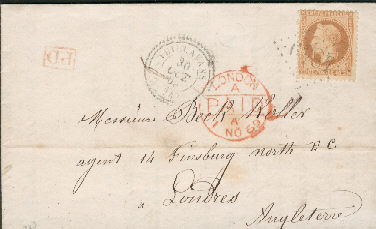 P.P.
30
LONDON
A
PAID
NO 69
Messieurs Beck Keller
agent 14 Finsburg north E.C.
à Londres
Angleterre